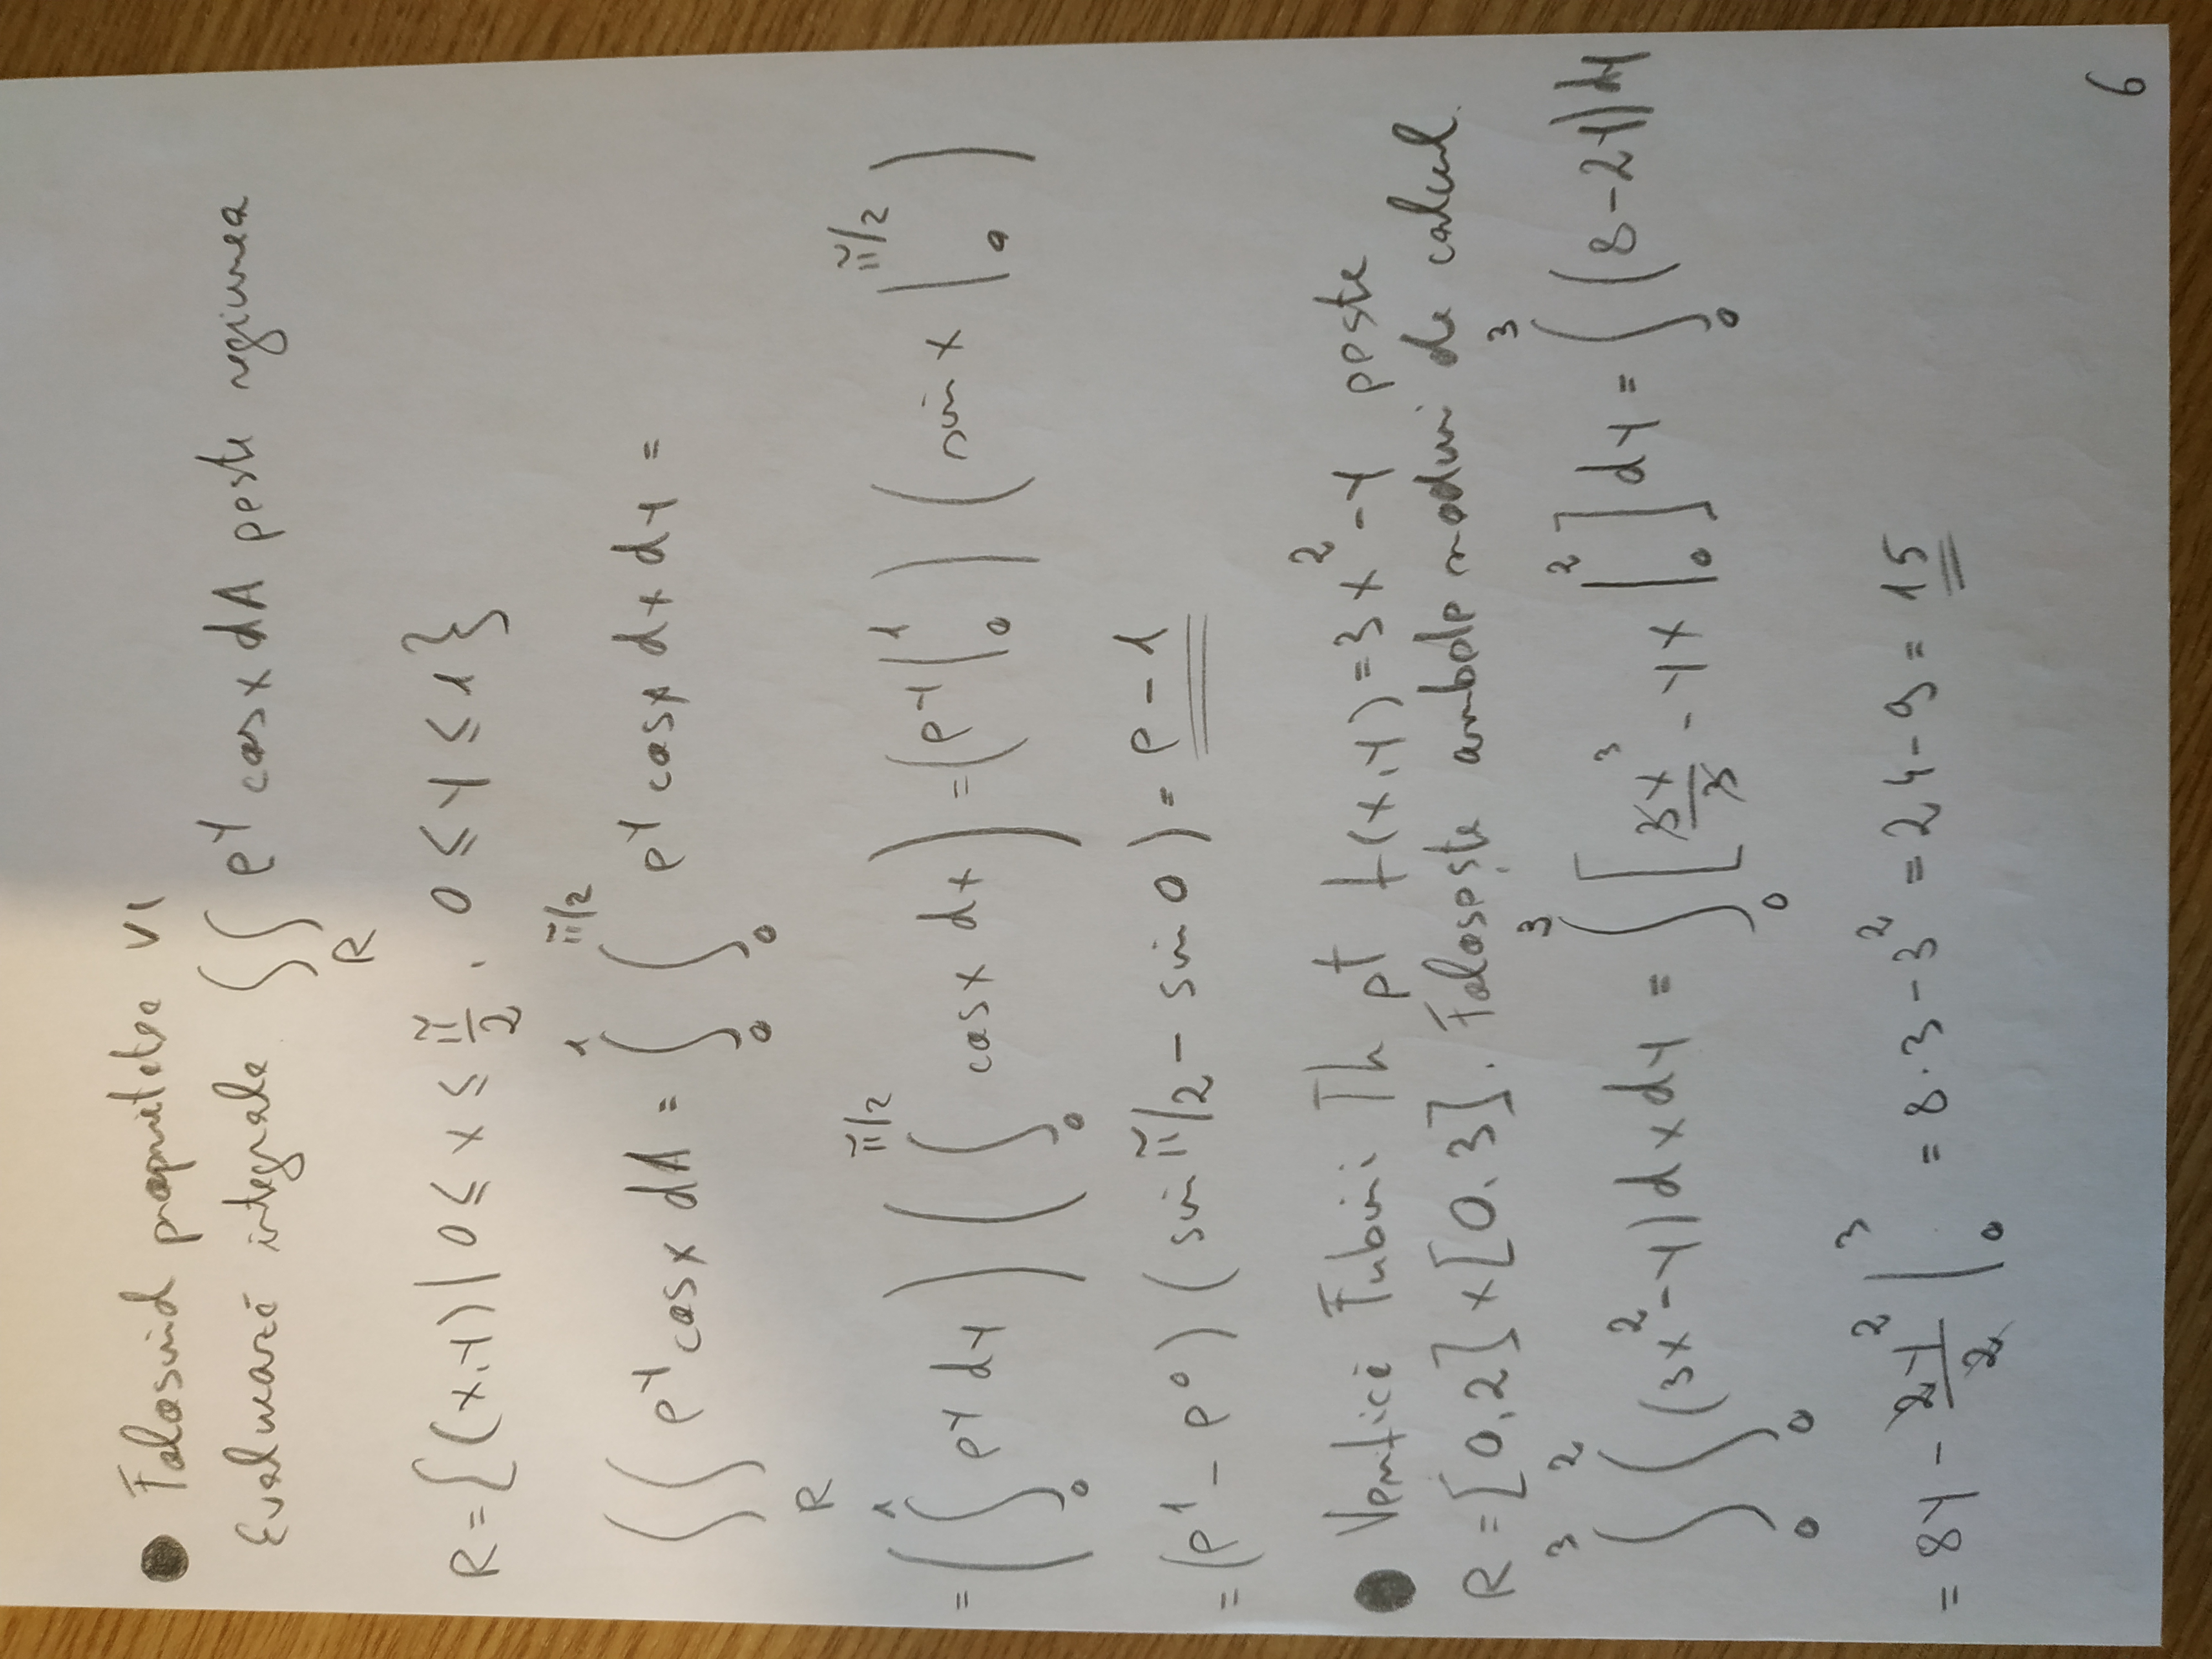 ● Folosind proprietatea VI
Evaluează integrala ∫∫_R e^y cos x dA peste regiunea
R = {(x,y) | 0 ≤ x ≤ π/2, 0 ≤ y ≤ 1}
∫∫_R e^y cos x dA = ∫_0^1 ∫_0^{π/2} e^y cos x dx dy =
= (∫_0^1 e^y dy) (∫_0^{π/2} cos x dx) = (e^y |_0^1) (sin x |_0^{π/2})
= (e^1 - e^0) (sin π/2 - sin 0) = e - 1
● Verifică Fubini Th pt f(x,y) = 3x^2 - y peste
R = [0,2] × [0,3]. Folosește ambele moduri de calcul.
∫_0^3 ∫_0^2 (3x^2 - y) dx dy = ∫_0^3 [3x^3/3 - yx |_0^2] dy = ∫_0^3 (8 - 2y) dy
= 8y - 2y^2/2 |_0^3 = 8·3 - 3^2 = 24 - 9 = 15
6